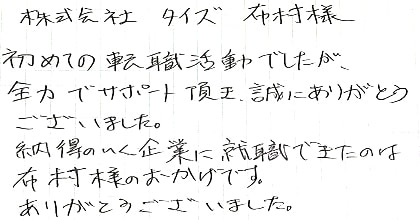 株式会社 タイズ 布村様
初めての転職活動でしたが、
全力でサポート頂き、誠にありがとう
ございました。
納得のいく企業に就職できたのは
布村様のおかげです。
ありがとうございました。